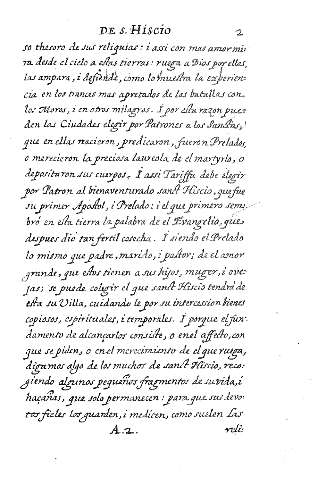 DE S. HISCIO 2
so thesoro de sus reliquias: i assi con mas amor mi-
ra desde el cielo a estas tierras: ruega a Dios por ellas,
las ampara, i defiende, como lo muestra la experien-
cia en los trances mas apretados de las batallas con-
los Moros, i en otros milagros. I por esta razon pue-
den las Ciudades elegir por Patrones a los Sanctos,
que en ellas nacieron, predicaron, fueron Prelados,
o merecieron la preciosa laureola de el martyrio, o
depositaron sus cuerpos. I assi Tariffa debe elegir
por Patron al bienaventurado sanct Hiscio, que fue
su primer Apostol, i Prelado: i el que primero sem-
bró en esta tierra la palabra de el Evangelio, que
despues dió tan fertil cosecha. I siendo el Prelado
lo mismo que padre, marido, i pastor; de el amor
grande, que estos tienen a sus hijos, muger, i ove-
jas; se puede colegir el que sanct Hiscio tendrá de
esta su Villa, cuidando le por su intercession bienes
copiosos, espirituales, i temporales. I porque el fun-
damento de alcançarlos consiste, o en el affecto, con
que se piden, o en el merecimiento de el que ruega,
digamos algo de los muchos de sanct Hiscio, reco-
giendo algunos pequeños fragmentos de su vida, i
haçañas, que solo permanecen: para que sus devo-
tos fieles los guarden, i mediten, como suelen las
A. 2.